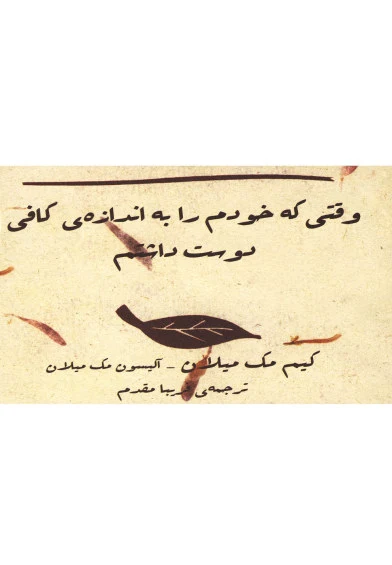 وقتی که خودم را به اندازه‌ی کافی
دوست داشتم
کیم مک میلان - آلیسون مک میلان
ترجمه‌ی فریبا مقدم